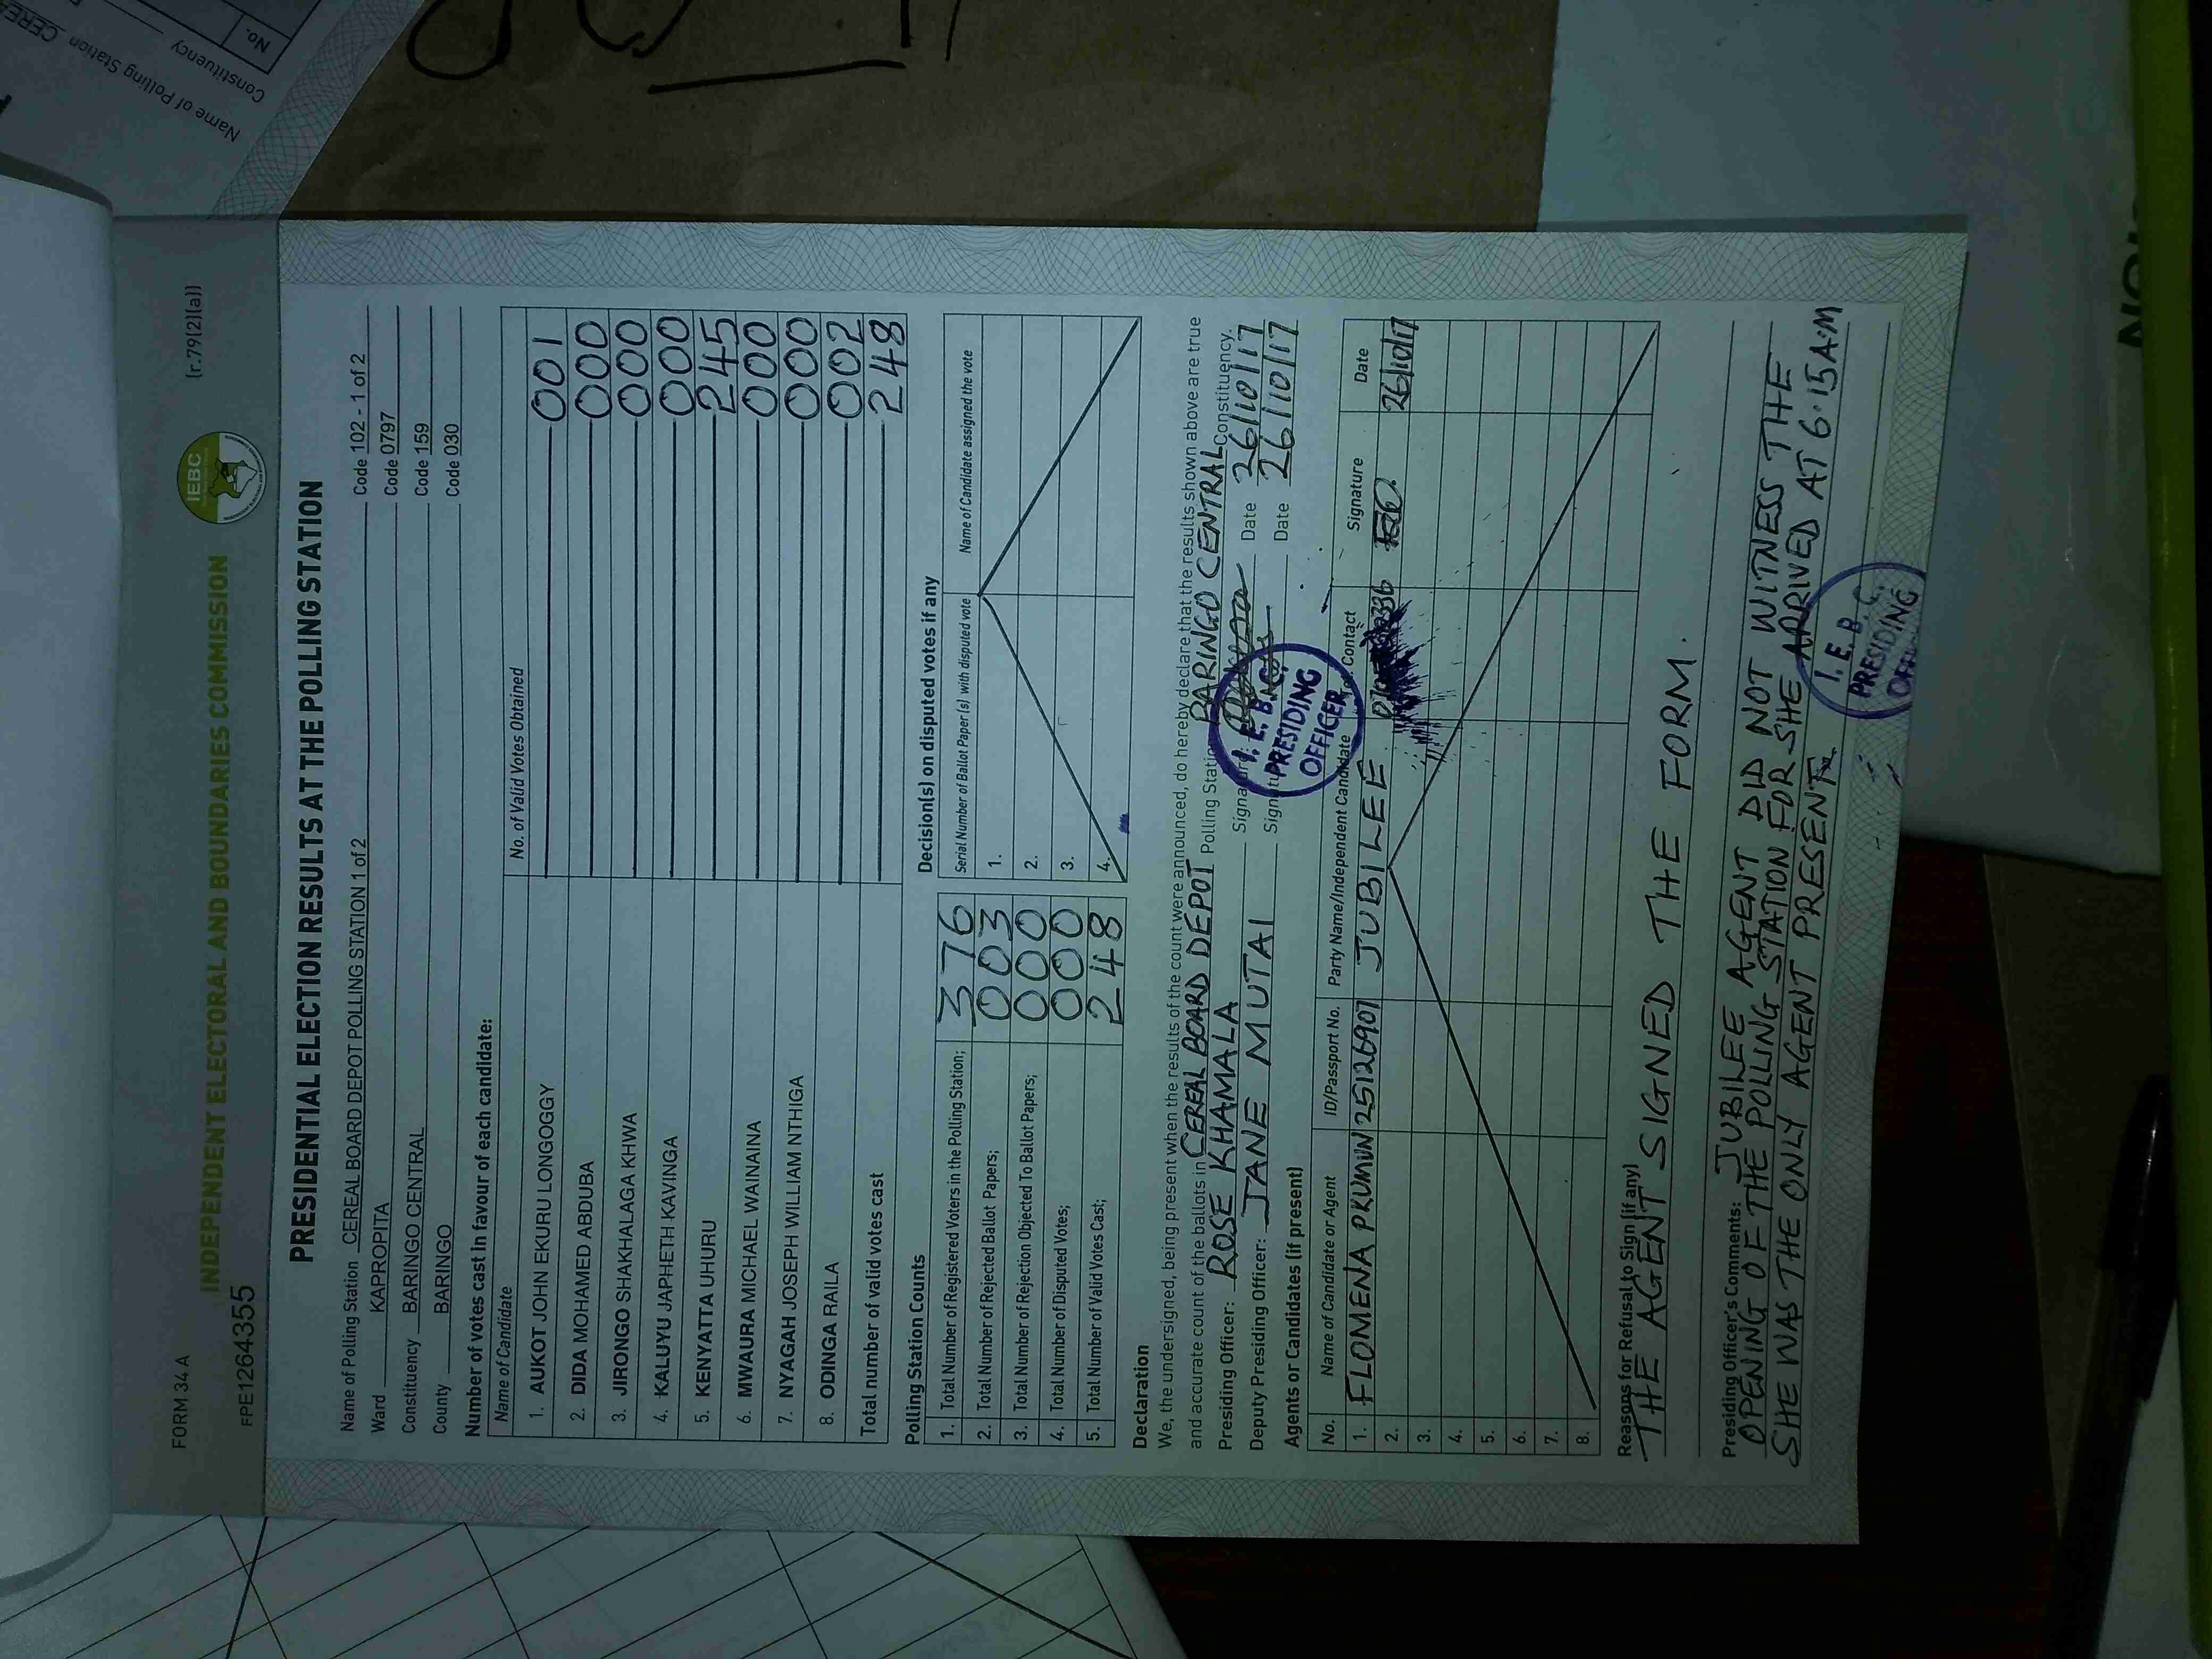 FORM 34 A
(r.79(2)(a))
IEBC
FPE1264355
INDEPENDENT ELECTORAL AND BOUNDARIES COMMISSION
PRESIDENTIAL ELECTION RESULTS AT THE POLLING STATION
Name of Polling Station CEREAL BOARD DEPOT POLLING STATION 1 of 2 Code 102 - 1 of 2
Ward KAPROPITA Code 0797
Constituency BARINGO CENTRAL Code 159
County BARINGO Code 030
Number of votes cast in favour of each candidate:
Name of Candidate No. of Valid Votes Obtained
1. AUKOT JOHN EKURU LONGOGGY 001
2. DIDA MOHAMED ABDUBA 000
3. JIRONGO SHAKHALAGA KHWA 000
4. KALUYU JAPHETH KAVINGA 000
5. KENYATTA UHURU 245
6. MWAURA MICHAEL WAINAINA 000
7. NYAGAH JOSEPH WILLIAM NTHIGA 000
8. ODINGA RAILA 002
Total number of valid votes cast 248
Polling Station Counts
1. Total Number of Registered Voters in the Polling Station; 376
2. Total Number of Rejected Ballot Papers; 003
3. Total Number of Rejection Objected To Ballot Papers; 000
4. Total Number of Disputed Votes; 000
5. Total Number of Valid Votes Cast; 248
Decision(s) on disputed votes if any
Serial Number of Ballot Paper(s) with disputed vote Name of Candidate assigned the vote
1.
2.
3.
4.
Declaration
We, the undersigned, being present when the results of the count were announced, do hereby declare that the results shown above are true
and accurate count of the ballots in CEREAL BOARD DEPOT Polling Station BARINGO CENTRAL Constituency.
Presiding Officer: ROSE KHAMALA Signature Date 26/10/17
Deputy Presiding Officer: JANE MUTAI Signature Date 26/10/17
I. E. B. C.
PRESIDING
OFFICER
Agents or Candidates (if present)
No. Name of Candidate or Agent ID/Passport No. Party Name/Independent Candidate Contact Signature Date
1. FLOMENA 25126907 JUBILEE 26/10/17
2.
3.
4.
5.
6.
7.
8.
Reasons for Refusal to Sign (if any)
THE AGENT SIGNED THE FORM.
Presiding Officer's Comments: JUBILEE AGENT DID NOT WITNESS THE
OPENING OF THE POLLING STATION FOR SHE ARRIVED AT 6.15 A.M
SHE WAS THE ONLY AGENT PRESENT
I. E. B. C.
PRESIDING
Name of Polling Station CERE
Constituency
No.